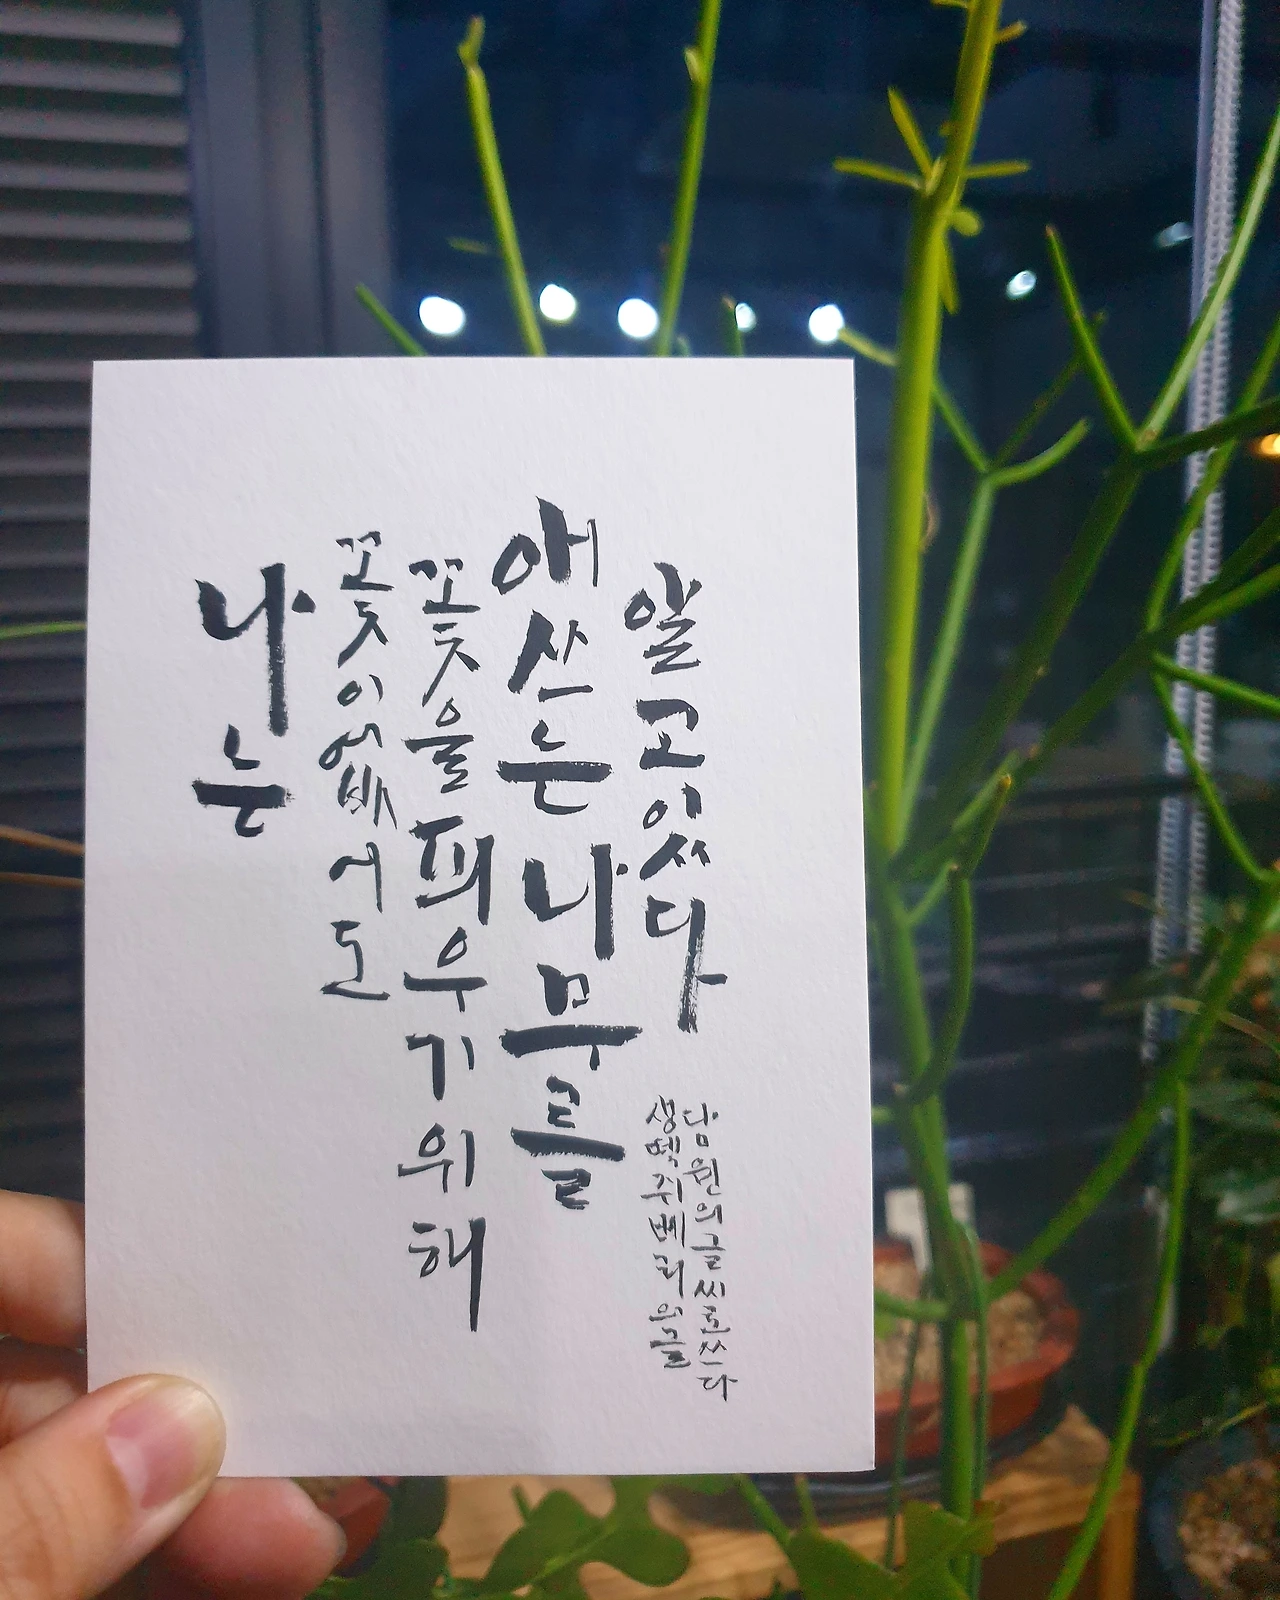 나는
꽃이없어도
꽃을피우기위해
애쓰는나무를
알고있다
생떽쥐베리의글
담원의글씨로쓰다